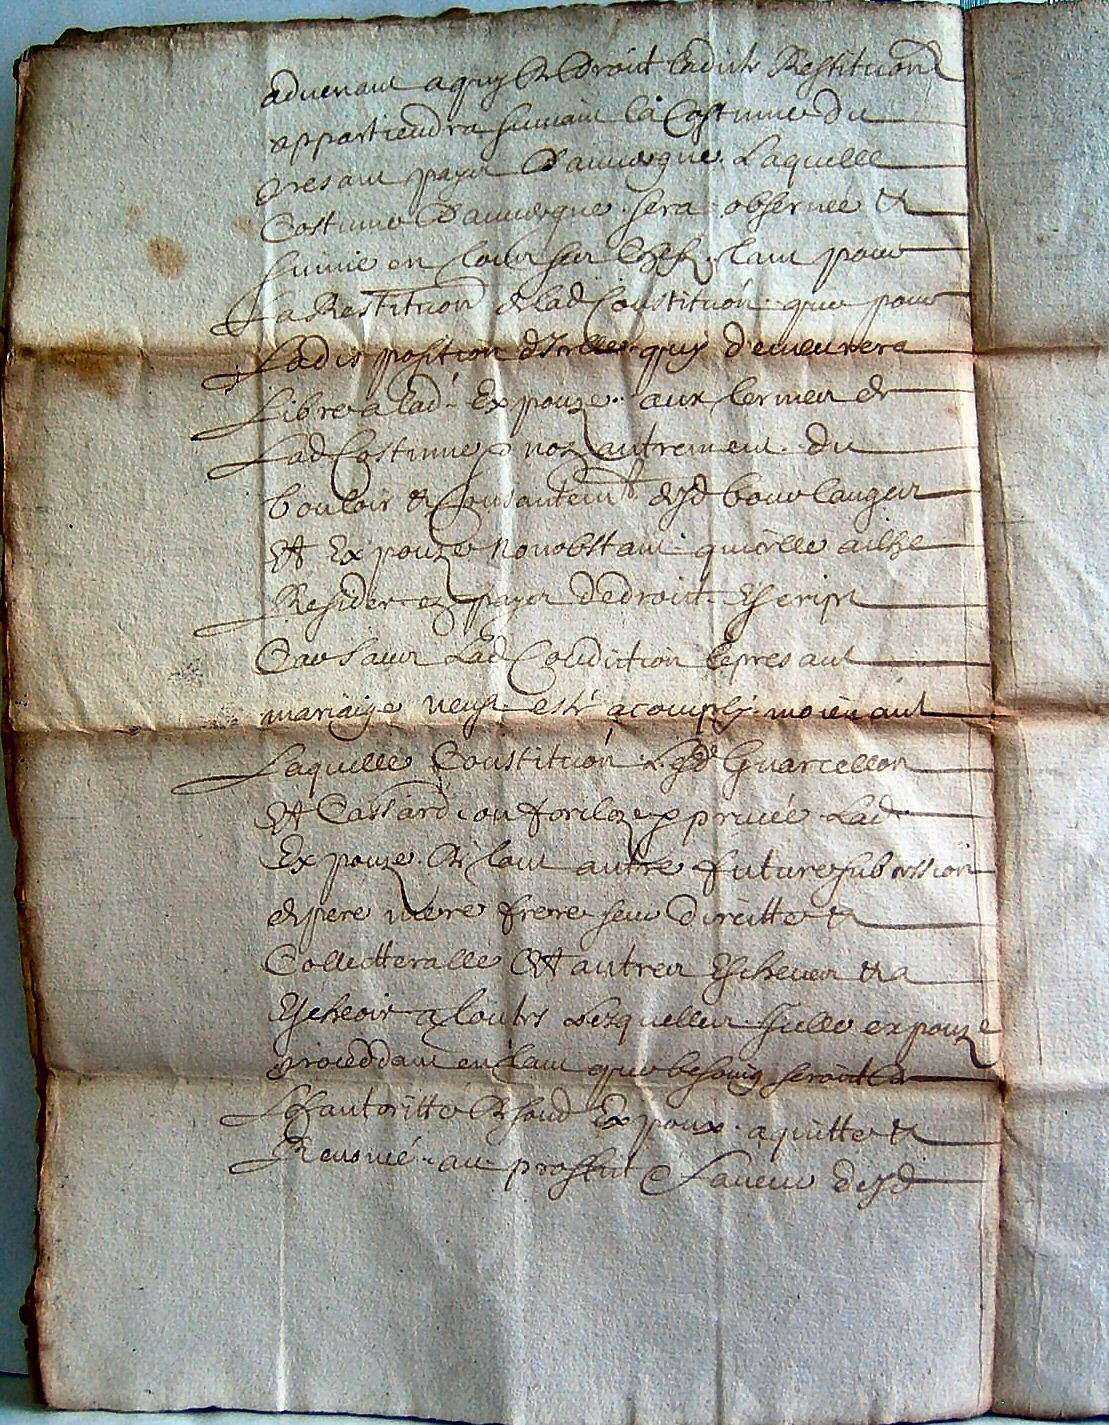 advenant a quy de droit ladite Restitution
appartiendra suivant la Costume du
presant payx d'auvergne. Laquelle
Costume d'auvergne sera observee et
suivie en tout sur chefz. tant pour
La Restitution de lad Constitution que pour
La disposition d'Icelle quy demeurera
Libre a lad. Expouze aux termes de
Lad Costume et non autrement du
vouloir et Consantement desd bourlangeir
Et Expouze nonobstant qu'elle ailhe
Resider en payx de droit Escript
Car sans Lad Condittion le presant
mariaige neust esté acomply moienant
Laquelle Constitution Lesd Guarcellon
Et Cassard ont forcloze privée Lad
Expouze de tout autre future subcession
de pere mere frere seur directte et
Collectteralle Et autres Escheues et a
Escheoir a toutes Lesquelles Icelle expouze
proceddant en tant que besoing seroit de
Lotantoritte de sond Expoux a quitte et
Renoncé au proffit et faveur desd